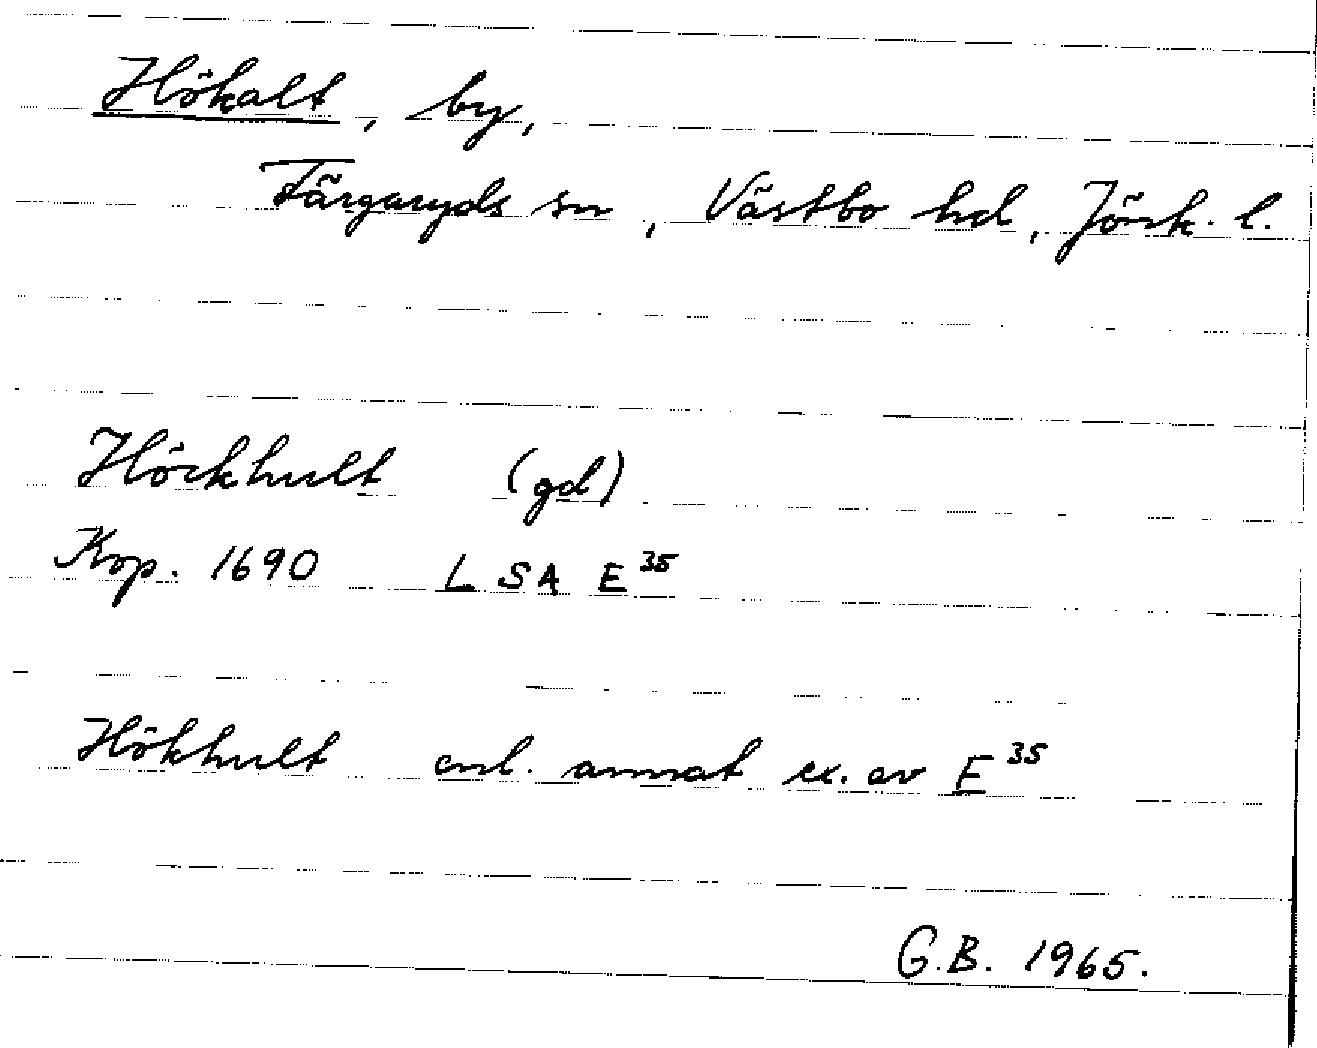 Hökalt, by,
Färgaryds sn, Västbo hd, Jönk. l.
Höckhult (gd)
Kop. 1690 LSA E 35
Hökhult enl. annat ex. av E 35
G.B. 1965.